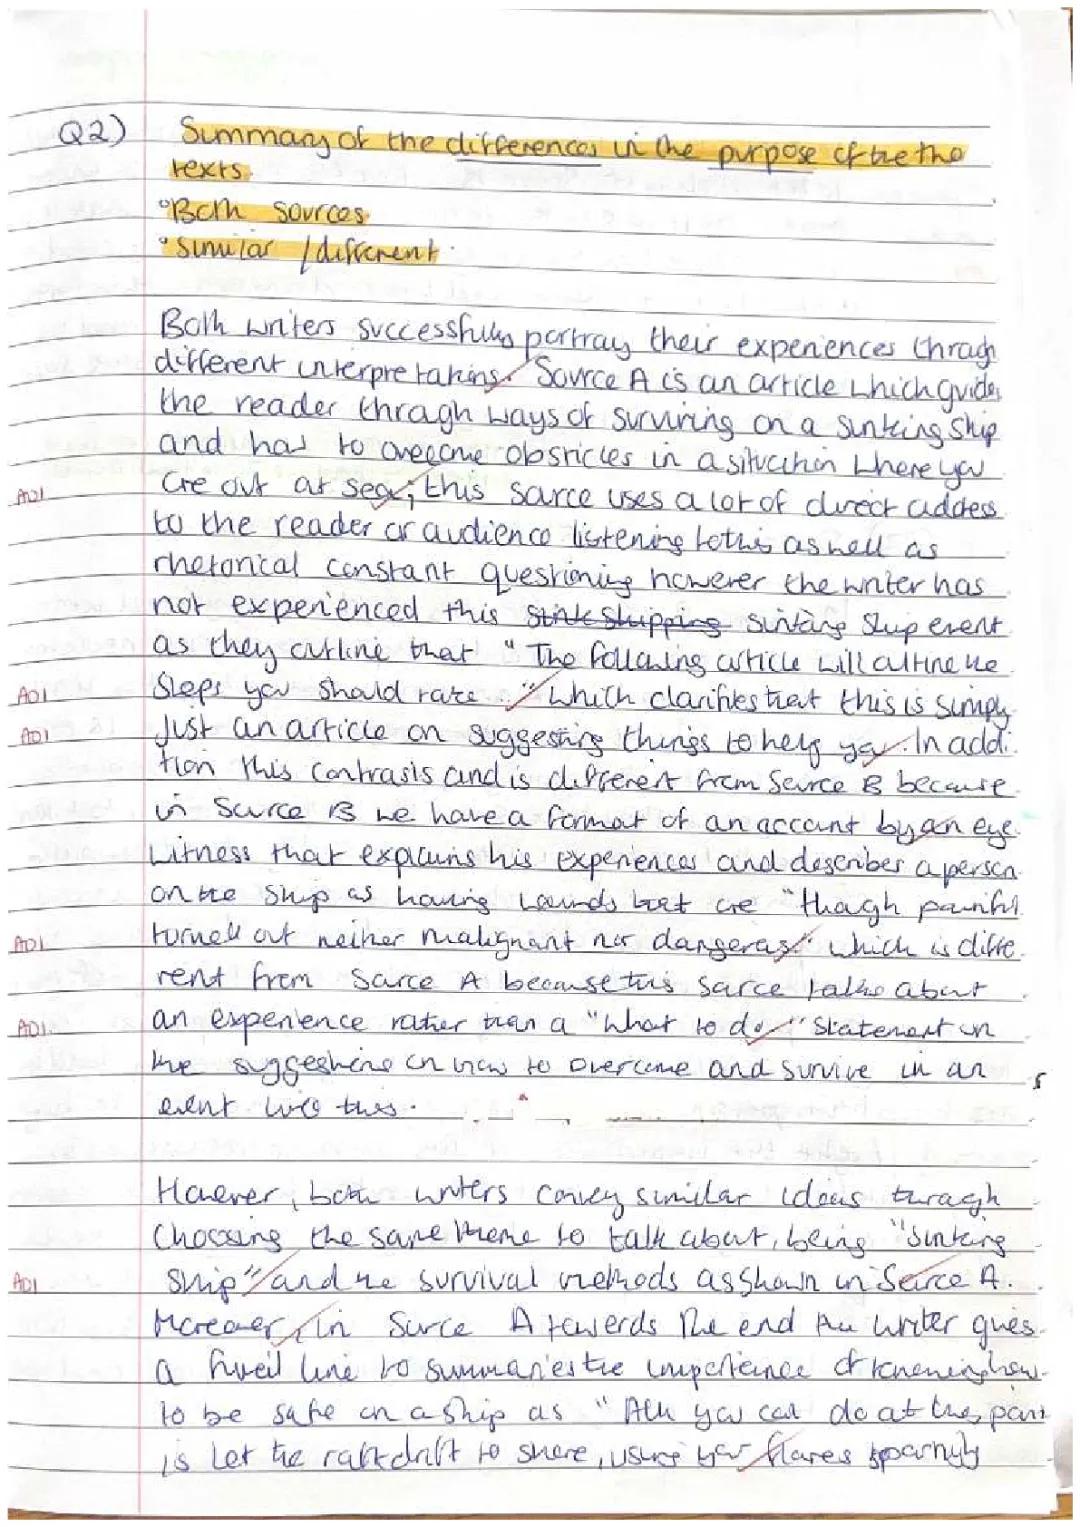 Q2) Summary of the differences in the purpose of the the
texts.
°Both sources
°similar / different.
Both writers successfully portray their experiences through
different interpretations. Source A is an article which guides
the reader through ways of surviving on a sinking ship
and has to overcome obsticles in a situation where you
AO1 are out at sea, this source uses a lot of direct address
to the reader or audience listening to this as well as
rhetorical constant questioning however the writer has
not experienced this sinking ship event
as they outline that "The following article will outline the
AO1 steps you should take." which clarifies that this is simply
AO1 Just an article on suggesting things to help you. In addi-
tion this contrasts and is different from Source B because
in Source B we have a format of an account by an eye
witness that explains his experiences and describes a person
on the ship as having wounds that are "though painful
AO1 turned out neither malignant nor dangerous." which is diffe-
rent from Source A because this source talks about
AO1 an experience rather than a "what to do" statement on
the suggestions on how to overcome and survive in an
event like this.
However, both writers convey similar ideas through
Choosing the same theme to talk about, being "sinking
AO1 ship" and the survival methods as shown in Source A.
Moreover, in Source A towerds the end the writer gives
a final line to summaries the importance of knowing how
to be safe on a ship as "All you can do at this point
is let the raft drift to shore, using your flares sparingly